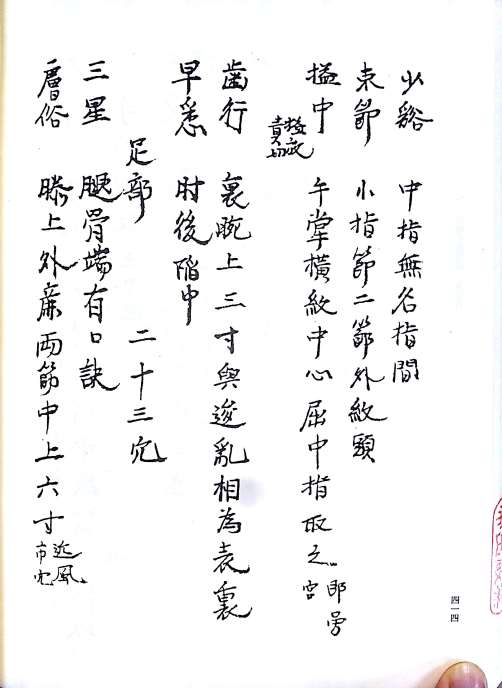 少谿 中指無名指間
束節 小指節二節外紋頭
搵中 午掌橫紋中心屈中指取之 即勞宮
齒行 裏腕上三寸與逆亂相為表裏
早悉 肘後陷中
足部 二十三穴
三星 腿骨端有口訣
層俗 膝上外廉兩筋中上六寸 近風市穴
四一四